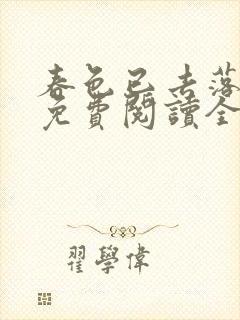 春色已去落
免費閱讀全
翟學偉